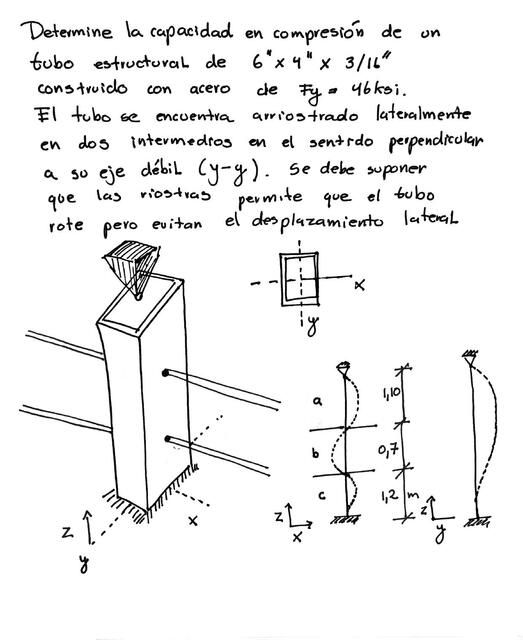 Determine la capacidad en compresión de un
tubo estructural de 6" x 4" x 3/16"
construido con acero de Fy = 46 ksi.
El tubo se encuentra arriostrado lateralmente
en dos intermedios en el sentido perpendicular
a su eje débil (y-y). Se debe suponer
que las riostras permite que el tubo
rote pero evitan el desplazamiento lateral
x
y
a
1,10
b
0,7
c
1,2 m
z
x
y
z
x
z
y